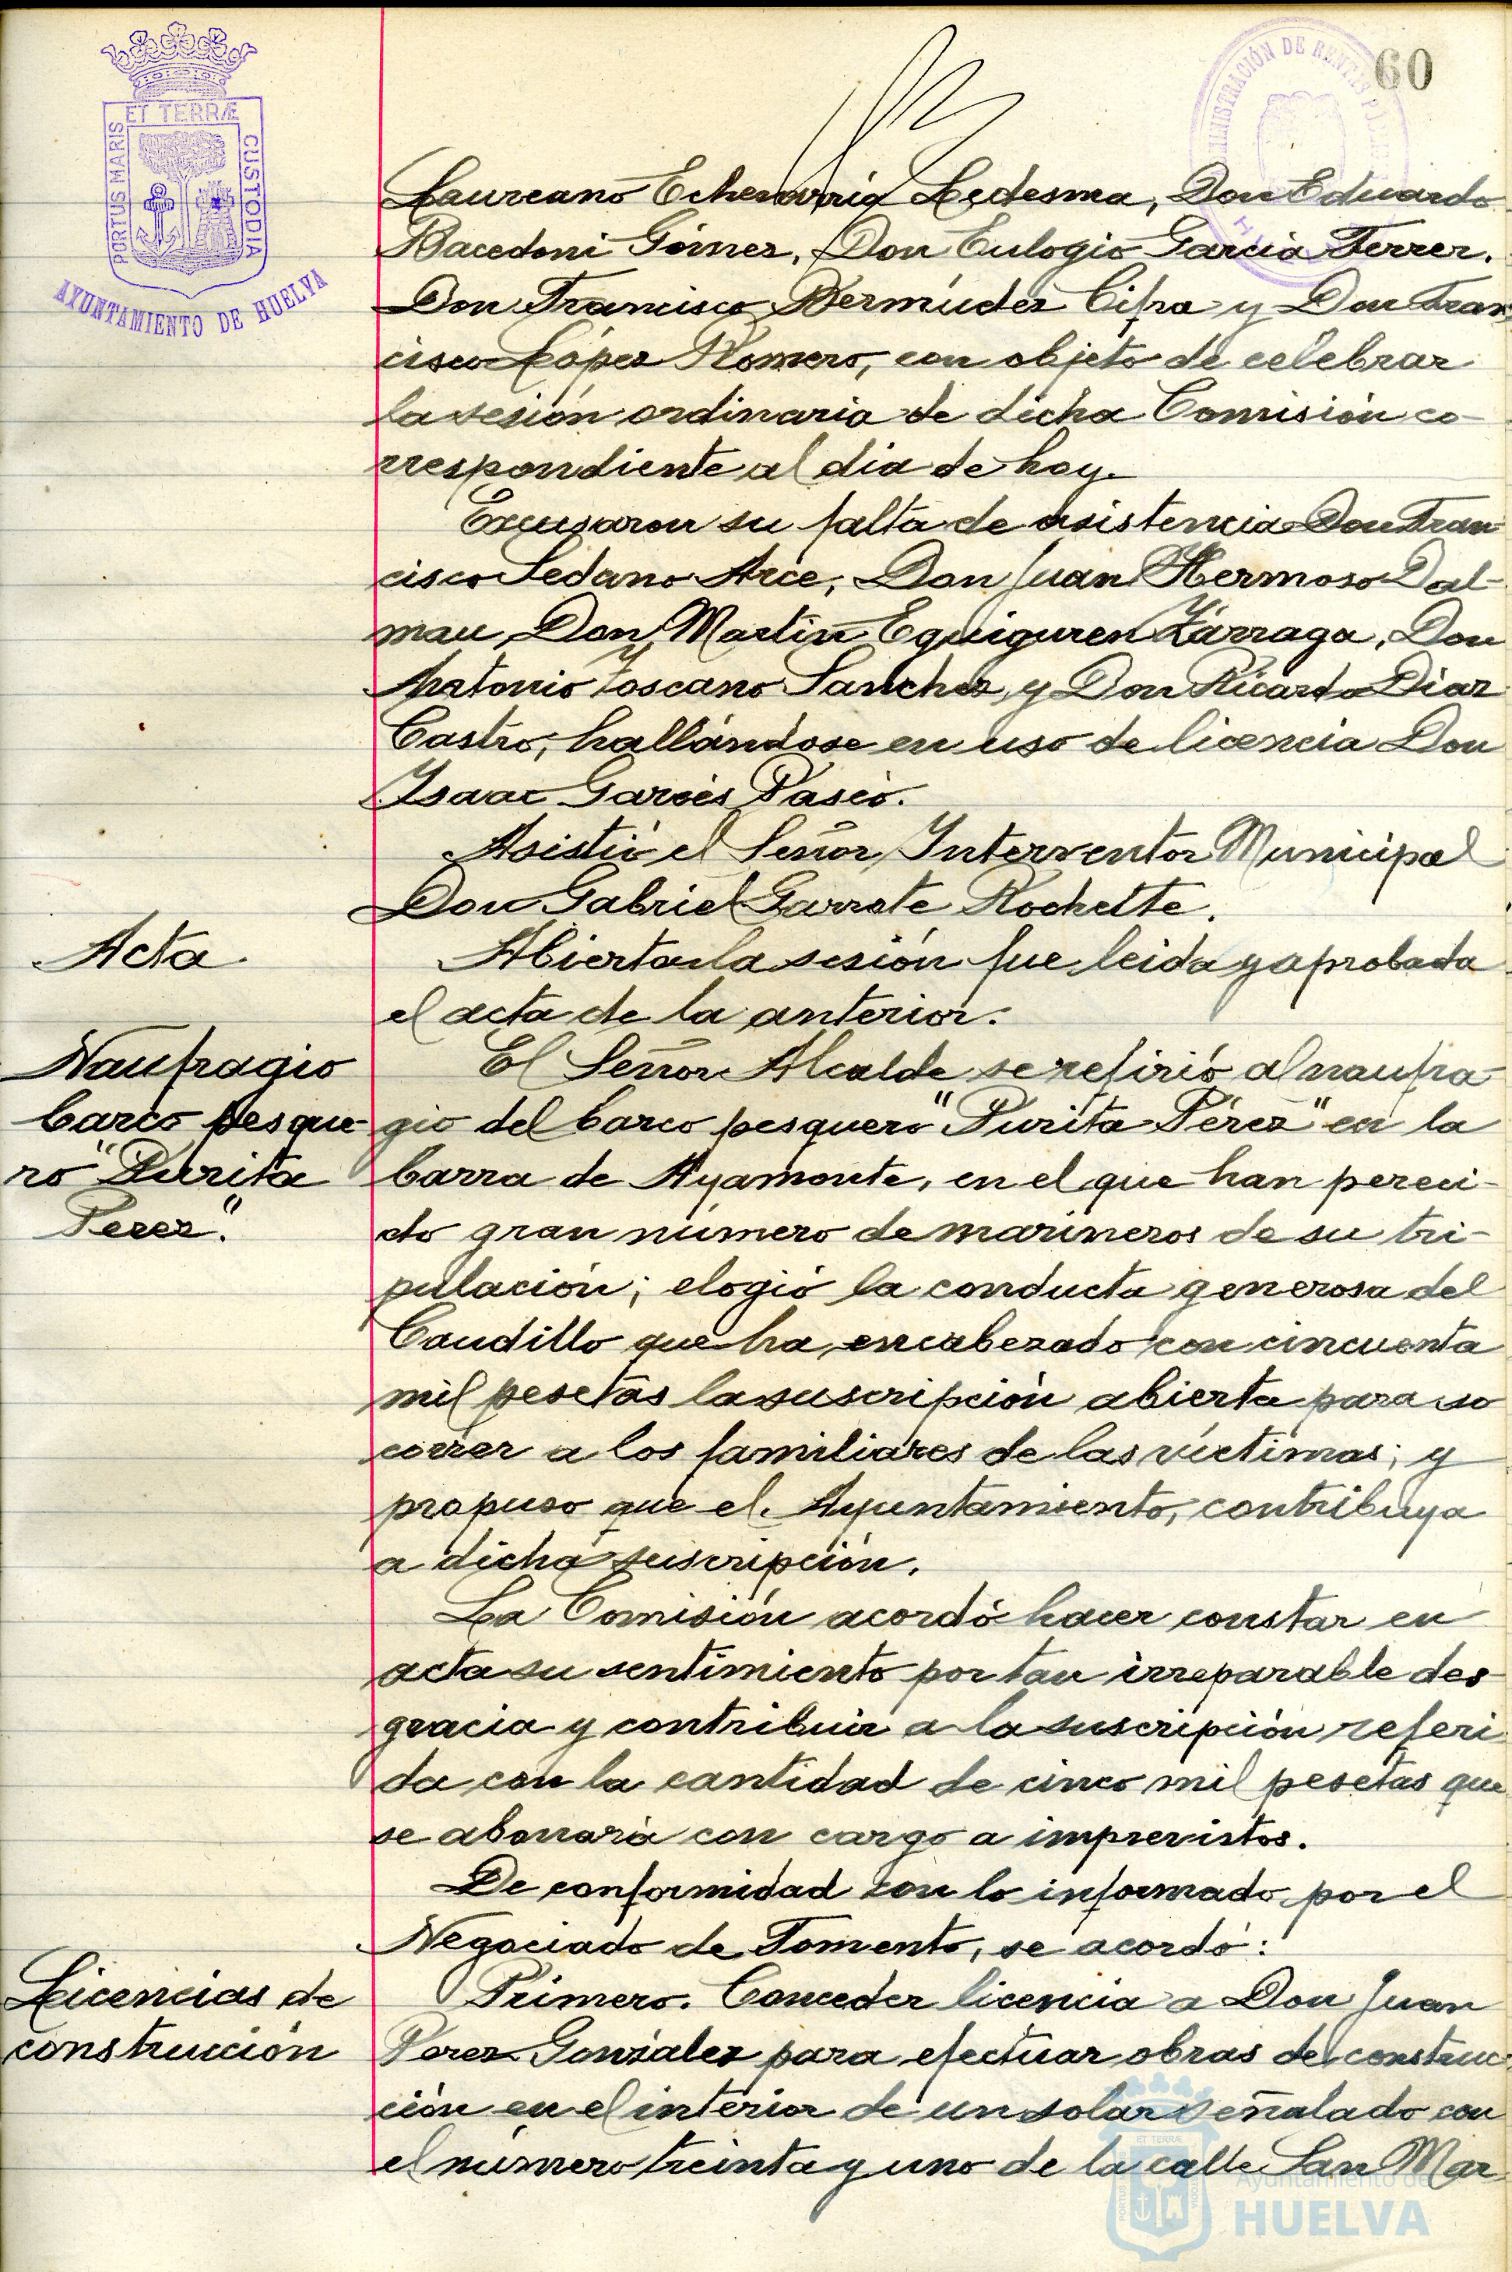 60
ET TERRÆ
PORTUS MARIS
CUSTODIA
AYUNTAMIENTO DE HUELVA
ADMINISTRACIÓN DE RENTAS
Laureano Echevarria Ledesma, Don Eduardo
Bacedoni Gómez, Don Eulogio García Ferrer,
Don Francisco Bermúdez Cifra y Don Fran
cisco López Romero, con objeto de celebrar
la sesión ordinaria de dicha Comisión co-
rrespondiente al dia de hoy.
Excusaron su falta de asistencia Don Fran-
cisco Sedano Arce, Don Juan Hermoso Dal-
mau, Don Martín Eguiguren Zárraga, Don
Antonio Toscano Sanchez, y Don Ricardo Diaz
Castro, hallándose en uso de licencia Don
Isaac Garcés Paseo.
Asistió el Señor Interventor Municipal
Don Gabriel Garrote Rochette.
Acta.
Abierta la sesión fue leida y aprobada
el acta de la anterior.
Naufragio
barco pesque-
ro "Purita
Perez".
El Señor Alcalde se refirió al naufra-
gio del barco pesquero "Purita Pérez" en la
barra de Ayamonte, en el que han pereci-
do gran número de marineros de su tri-
pulación; elogió la conducta generosa del
Caudillo que ha encabezado con cincuenta
mil pesetas la suscripción abierta para so
correr a los familiares de las víctimas; y
propuso que el Ayuntamiento, contribuya
a dicha suscripción.
La Comisión acordó hacer constar en
acta su sentimiento por tan irreparable des-
gracia y contribuir a la suscripción referi
da con la cantidad de cinco mil pesetas que
se abonará con cargo a imprevistos.
De conformidad con lo informado por el
Negociado de Fomento, se acordó:
Licencias de
construcción
Primero. Conceder licencia a Don Juan
Perez González para efectuar obras de construc-
ción en el interior de un solar señalado con
el número treinta y uno de la calle San Mar
Ayuntamiento de
HUELVA